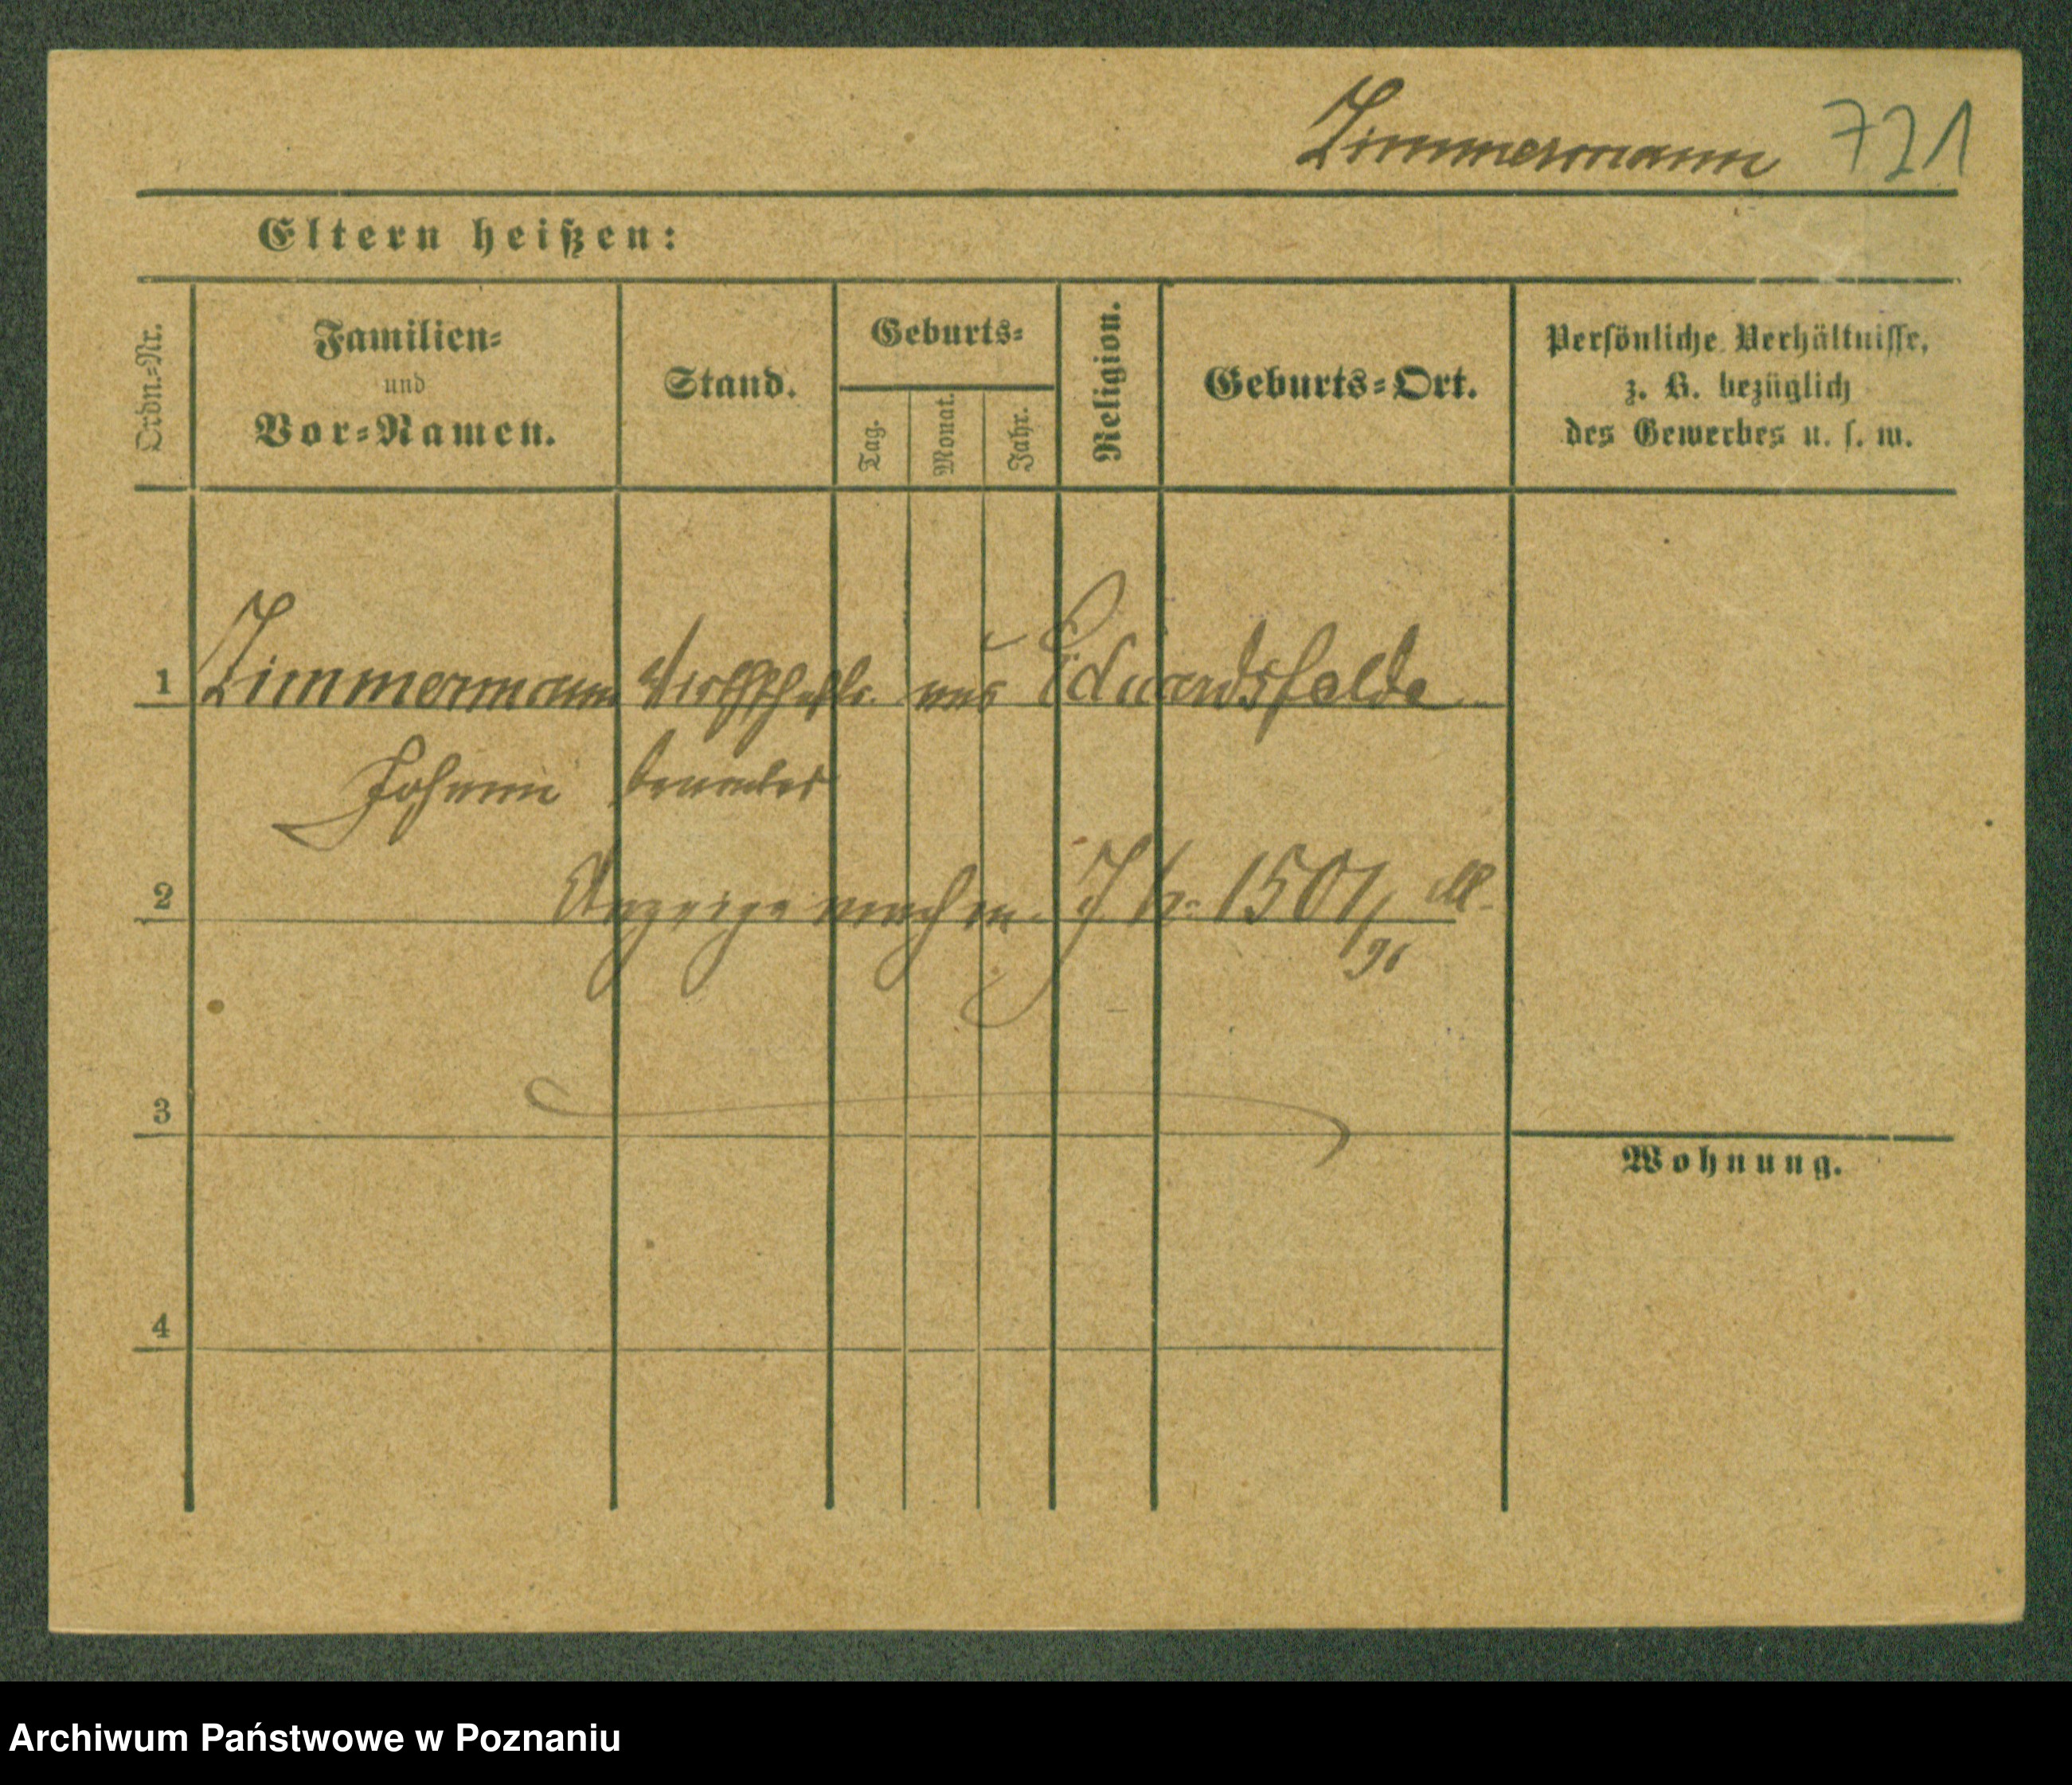 Zimmermann 721
Eltern heißen:
Ordn.-Nr.
Familien-
und
Vor-Namen.
Stand.
Geburts-
Tag.
Monat.
Jahr.
Religion.
Geburts-Ort.
Persönliche Verhältnisse,
z. B. bezüglich
des Gewerbes u. s. w.
1 Zimmermann Wirthschafts- aus Eduardsfelde
Johann beamter
2 Anzeige machen. 1501/96
3
Wohnung.
4
Archiwum Państwowe w Poznaniu